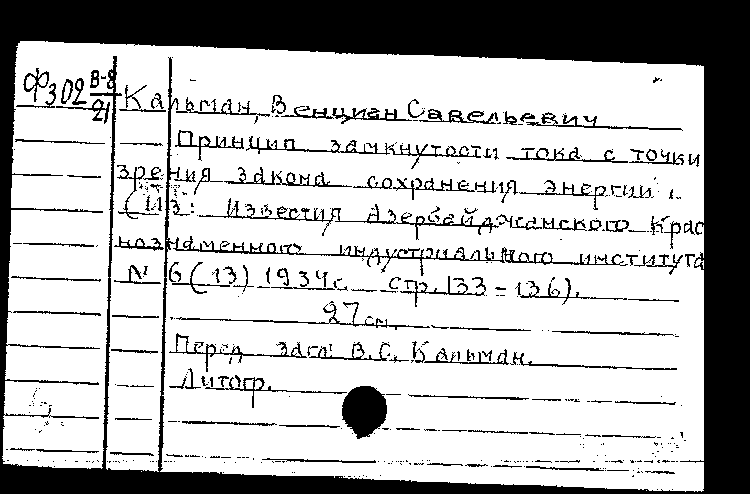 Ф302 В-8/21
Кальман, Венциан Савельевич
Принцип замкнутости тока с точки
зрения закона сохранения энергии.
(Из: Известия Азербайджанского Крас
нознаменного индустриального института
№ 6 (13) 1934г. стр. 133-136).
27 см.
Перед загл: В.С. Кальман.
Литогр.